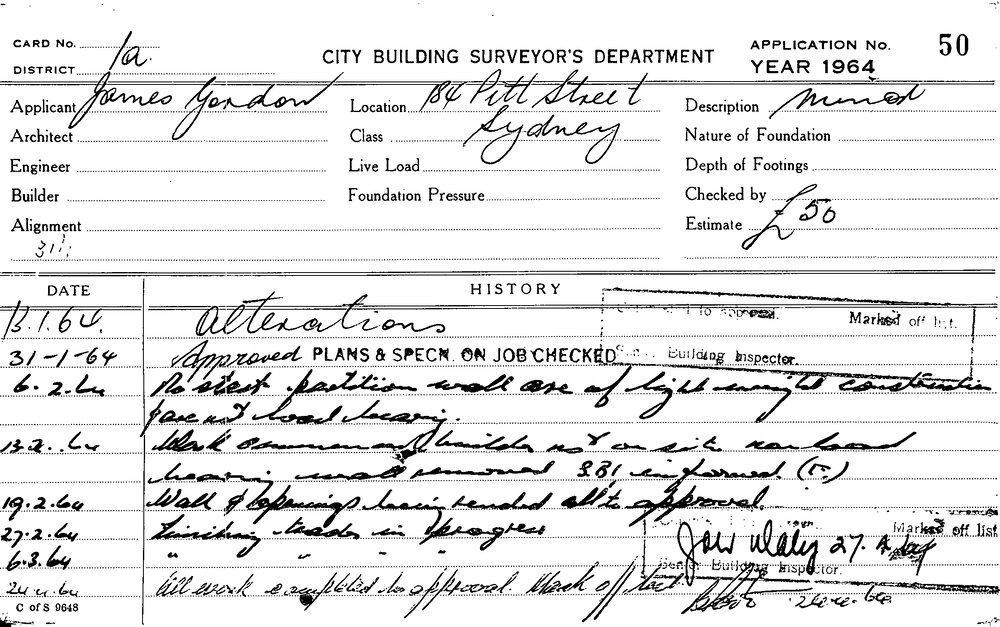 CARD No. 1a. CITY BUILDING SURVEYOR'S DEPARTMENT APPLICATION No. 50
DISTRICT YEAR 1964
Applicant James Gordon Location 184 Pitt Street Description
Architect Class Sydney Nature of Foundation
Engineer Live Load Depth of Footings
Builder Foundation Pressure Checked by
Alignment Estimate £50
DATE HISTORY
13.1.64. Alterations Marked off list.
31-1-64 Approved PLANS & SPECN. ON JOB CHECKED Building Inspector.
6.2.64 No start partition wall are of light weight construction
are not load bearing.
13.2.64 Work commenced builder not on site non load
bearing wall removed SBI informed.
19.2.64 Wall & openings being rended all to approval.
27.2.64 Finishing trades in progress Marked off list
6.3.64 " " " " 27.4.64
Senior Building Inspector.
24.4.64 All work completed to approval. Mark off card. 24.4.64
C of S 9648